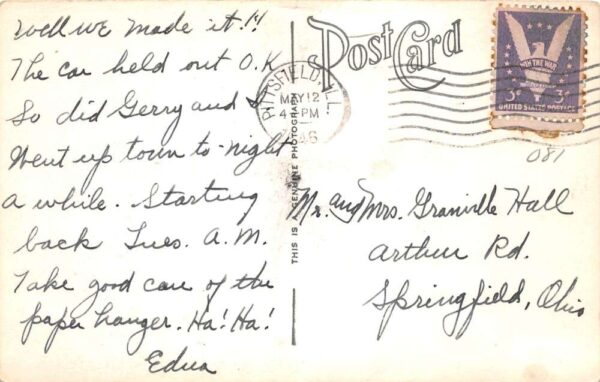 Well we made it!!
The car held out O.K
So did Gerry and I
Went up town to-night
a while. Starting
back Tues. A.M.
Take good care of the
paper hanger. Ha! Ha!
Edna
THIS IS A GENUINE PHOTOGRAPH
Post Card
PITTSFIELD, ILL.
MAY 12
4 PM
WIN THE WAR
3¢ 3¢
UNITED STATES POSTAGE
081
Mr. and Mrs. Granville Hall
Arthur Rd.
Springfield, Ohio